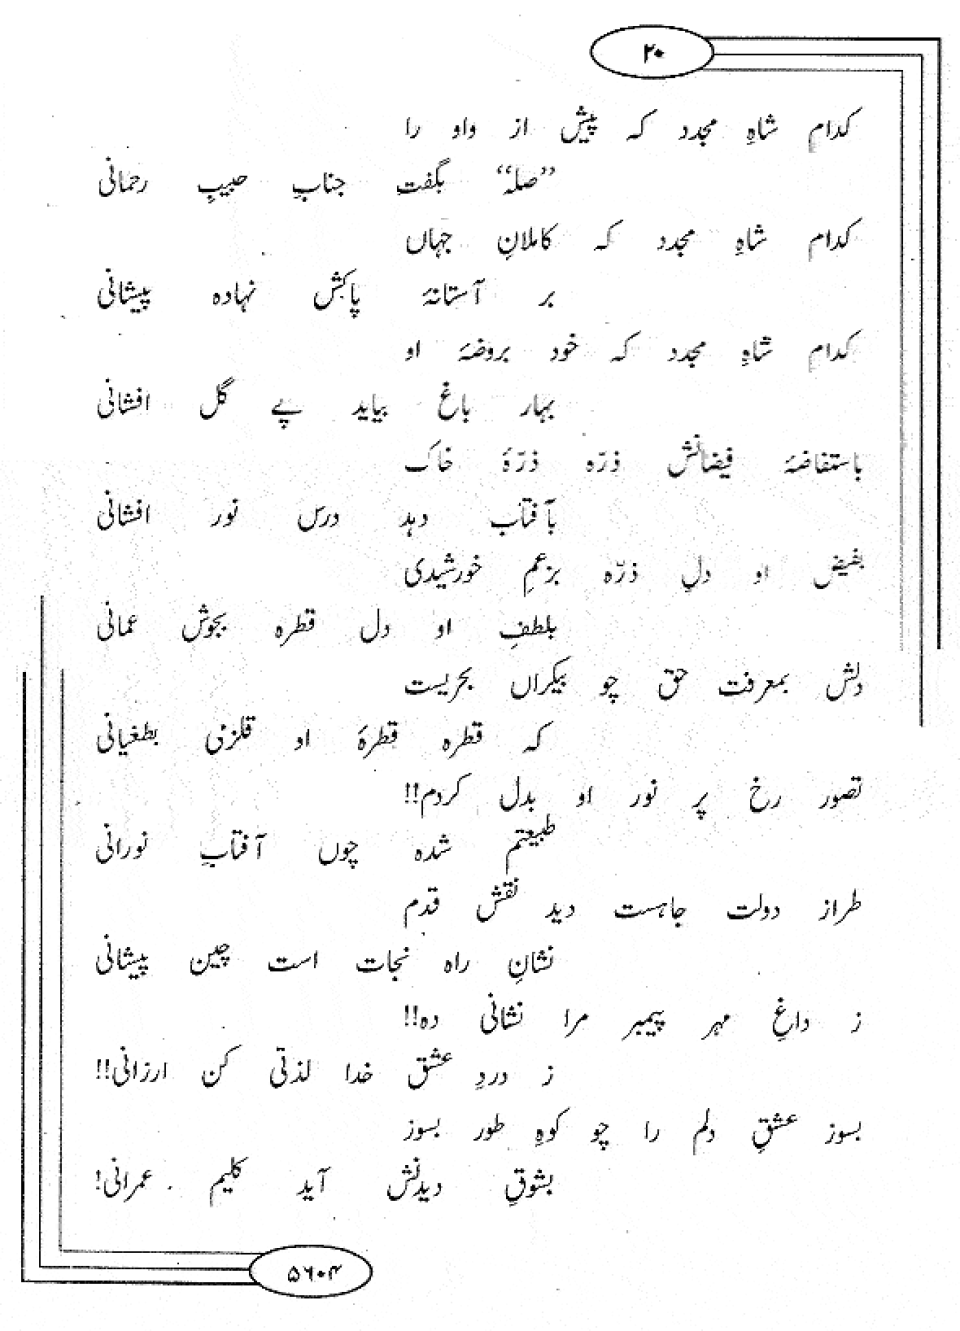 ۲۰
کدام شاہِ مجدد کہ پیش از واو را
"صلہ" بگفتِ جنابِ حبیبِ رحمانی
کدام شاہِ مجدد کہ کاملانِ جہاں
بر آستانۂ پاکش نہادہ پیشانی
کدام شاہِ مجدد کہ خود بروضۂ او
بہار باغ بیاید پے گل افشانی
باستفاضۂ فیضانش ذرّہ ذرّۂ خاک
بآفتاب دہد درس نور افشانی
بفیض او دلِ ذرّہ بزعمِ خورشیدی
بلطفِ او دل قطرہ بجوش عمانی
دلش بمعرفت حق چو بیکراں بحریست
کہ قطرہ قطرۂ او قلزمی بطغیانی
تصور رخ پر نور او بدل کردم!!
طبیعتم شدہ چوں آفتابِ نورانی
طراز دولت جاہست دید نقش قدم
نشانِ راہ نجات است چین پیشانی
ز داغِ مہر پیمبر مرا نشانی دہ!!
ز دردِ عشق خدا لذتی کن ارزانی!!
بسوز عشقِ دلم را چو کوہِ طور بسوز
بشوقِ دیدنش آید کلیم عمرانی!
۵۶۰۴